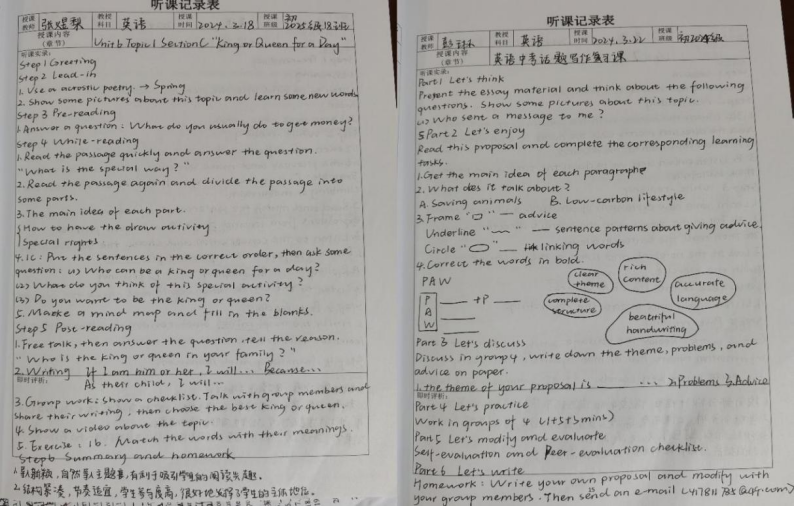 听课记录表
授课教师 张煜梨 教授科目 英语 授课时间 2024.3.18 授课班级
授课内容（章节） Unit 6 Topic 1 Section C "King or Queen for a Day"
听课实录：
Step 1 Greeting
Step 2 Lead-in
1. Use a acrostic poetry. → Spring
2. Show some pictures about this topic and learn some new words
Step 3 Pre-reading
1. Answer a question: What do you usually do to get money?
Step 4 While-reading
1. Read the passage quickly and answer the question.
"What is the special way?"
2. Read the passage again and divide the passage into
some parts.
3. The main idea of each part.
How to have the draw activity
Special rights
4. 1c: Put the sentences in the correct order, then ask some
question: (1) Who can be a king or queen for a day?
(2) What do you think of this special activity?
(3) Do you want to be the king or queen?
5. Make a mind map and fill in the blanks.
Step 5 Post-reading
1. Free talk, then answer the question, tell the reason.
"Who is the king or queen in your family?"
2. Writing If I am him or her, I will... Because...
As their child, I will...
即时评析：
3. Group work: Show a checklist. Talk with group members and
share their writing, then choose the best king or queen.
4. Show a video about the topic.
5. Exercise: 1b. Match the words with their meanings.
Step 6 Summary and homework
2. 结构紧凑，节奏适宜，学生参与度高，很好地发挥了学生的主体地位。
听课记录表
授课教师 教授科目 英语 授课时间 2024.3.22 授课班级
授课内容（章节） 英语中考话题写作复习课
听课实录：
Part 1 Let's think
Present the essay material and think about the following
questions. Show some pictures about this topic.
(1) Who sent a message to me?
Part 2 Let's enjoy
Read this proposal and complete the corresponding learning
tasks.
1. Get the main idea of each paragraph
2. What does it talk about?
A. Saving animals B. Low-carbon lifestyle
3. Frame "▭" — advice
Underline "﹏" — sentence patterns about giving advice.
Circle "⬭" — linking words
4. Correct the words in bold.
PAW
clear theme
rich content
accurate language
complete structure
beautiful handwriting
P ___ + P ___
A ___
W ___
Part 3 Let's discuss
Discuss in group 4, write down the theme, problems, and
advice on paper.
1. the theme of your proposal is ______ ... 2) Problems 3. Advice
即时评析：
Part 4 Let's practice
Work in groups of 4 (1+5+3mins)
Part 5 Let's modify and evaluate
Self-evaluation and Peer-evaluation checklist.
Part 6 Let's write
Homework: Write your own proposal and modify with
your group members. Then send an e-mail